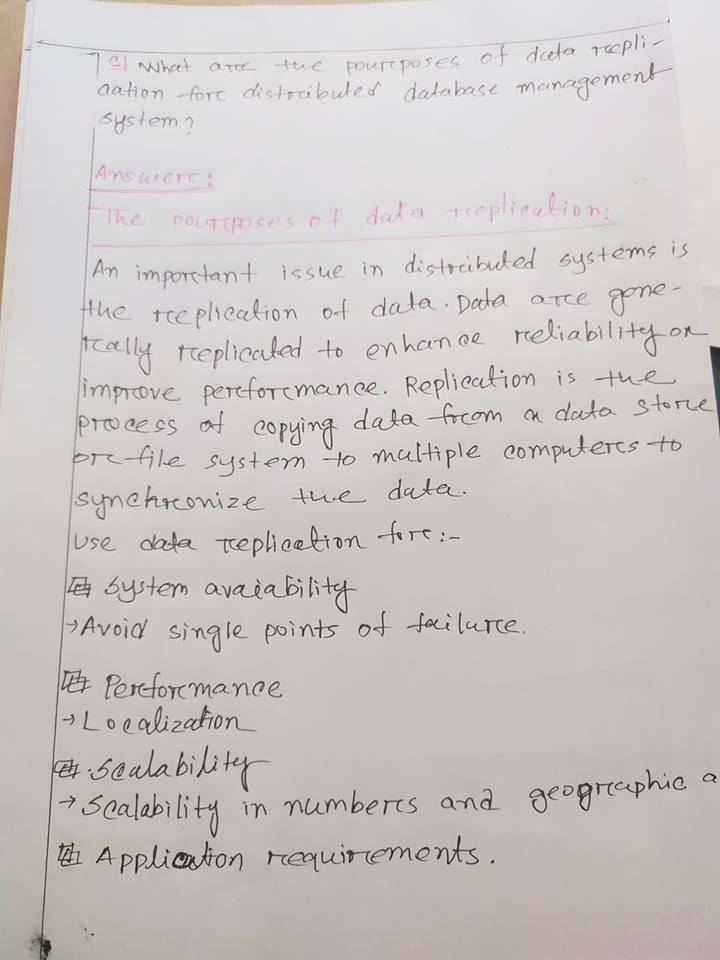 c) What are the pourposes of data repli-
cation for distributed database management
system?
Answere:
The pourposes of data replication:
An important issue in distributed systems is
the replication of data. Data are gene-
rally replicated to enhance reliability or
improve performance. Replication is the
process of copying data from a data store
or file system to multiple computers to
synchronize the data.
Use data replication for:-
System avaiability
→Avoid single points of failure.
Performance
→Localization
Scalability
→Scalability in numbers and geographic a
Application requirements.